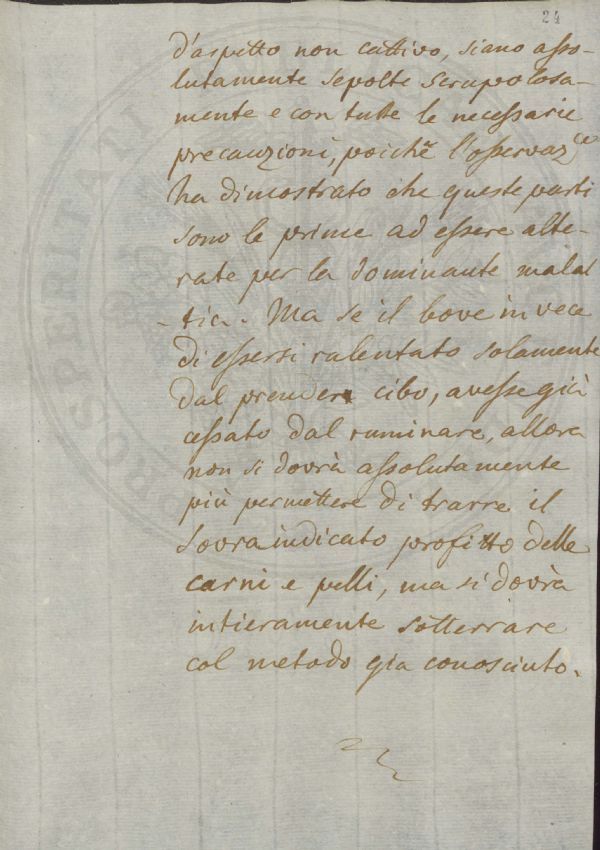 24
d'aspetto non cattivo, siano asso-
lutamente sepolte scrupolosa-
mente e con tutte le necessarie
precauzioni, poichè l'osservaz.ce
ha dimostrato che queste parti
sono le prime ad essere alte-
rate per la dominante malat
-tia. Ma se il bove in vece
di essersi ralentato solamente
dal prender cibo, avesse già
cessato dal ruminare, allora
non si dovrà assolutamente
più permettere di trarre il
sovraindicato profitto delle
carni e pelli, ma si dovrà
intieramente sotterrare
col metodo già conosciuto.
PROSPERITATI